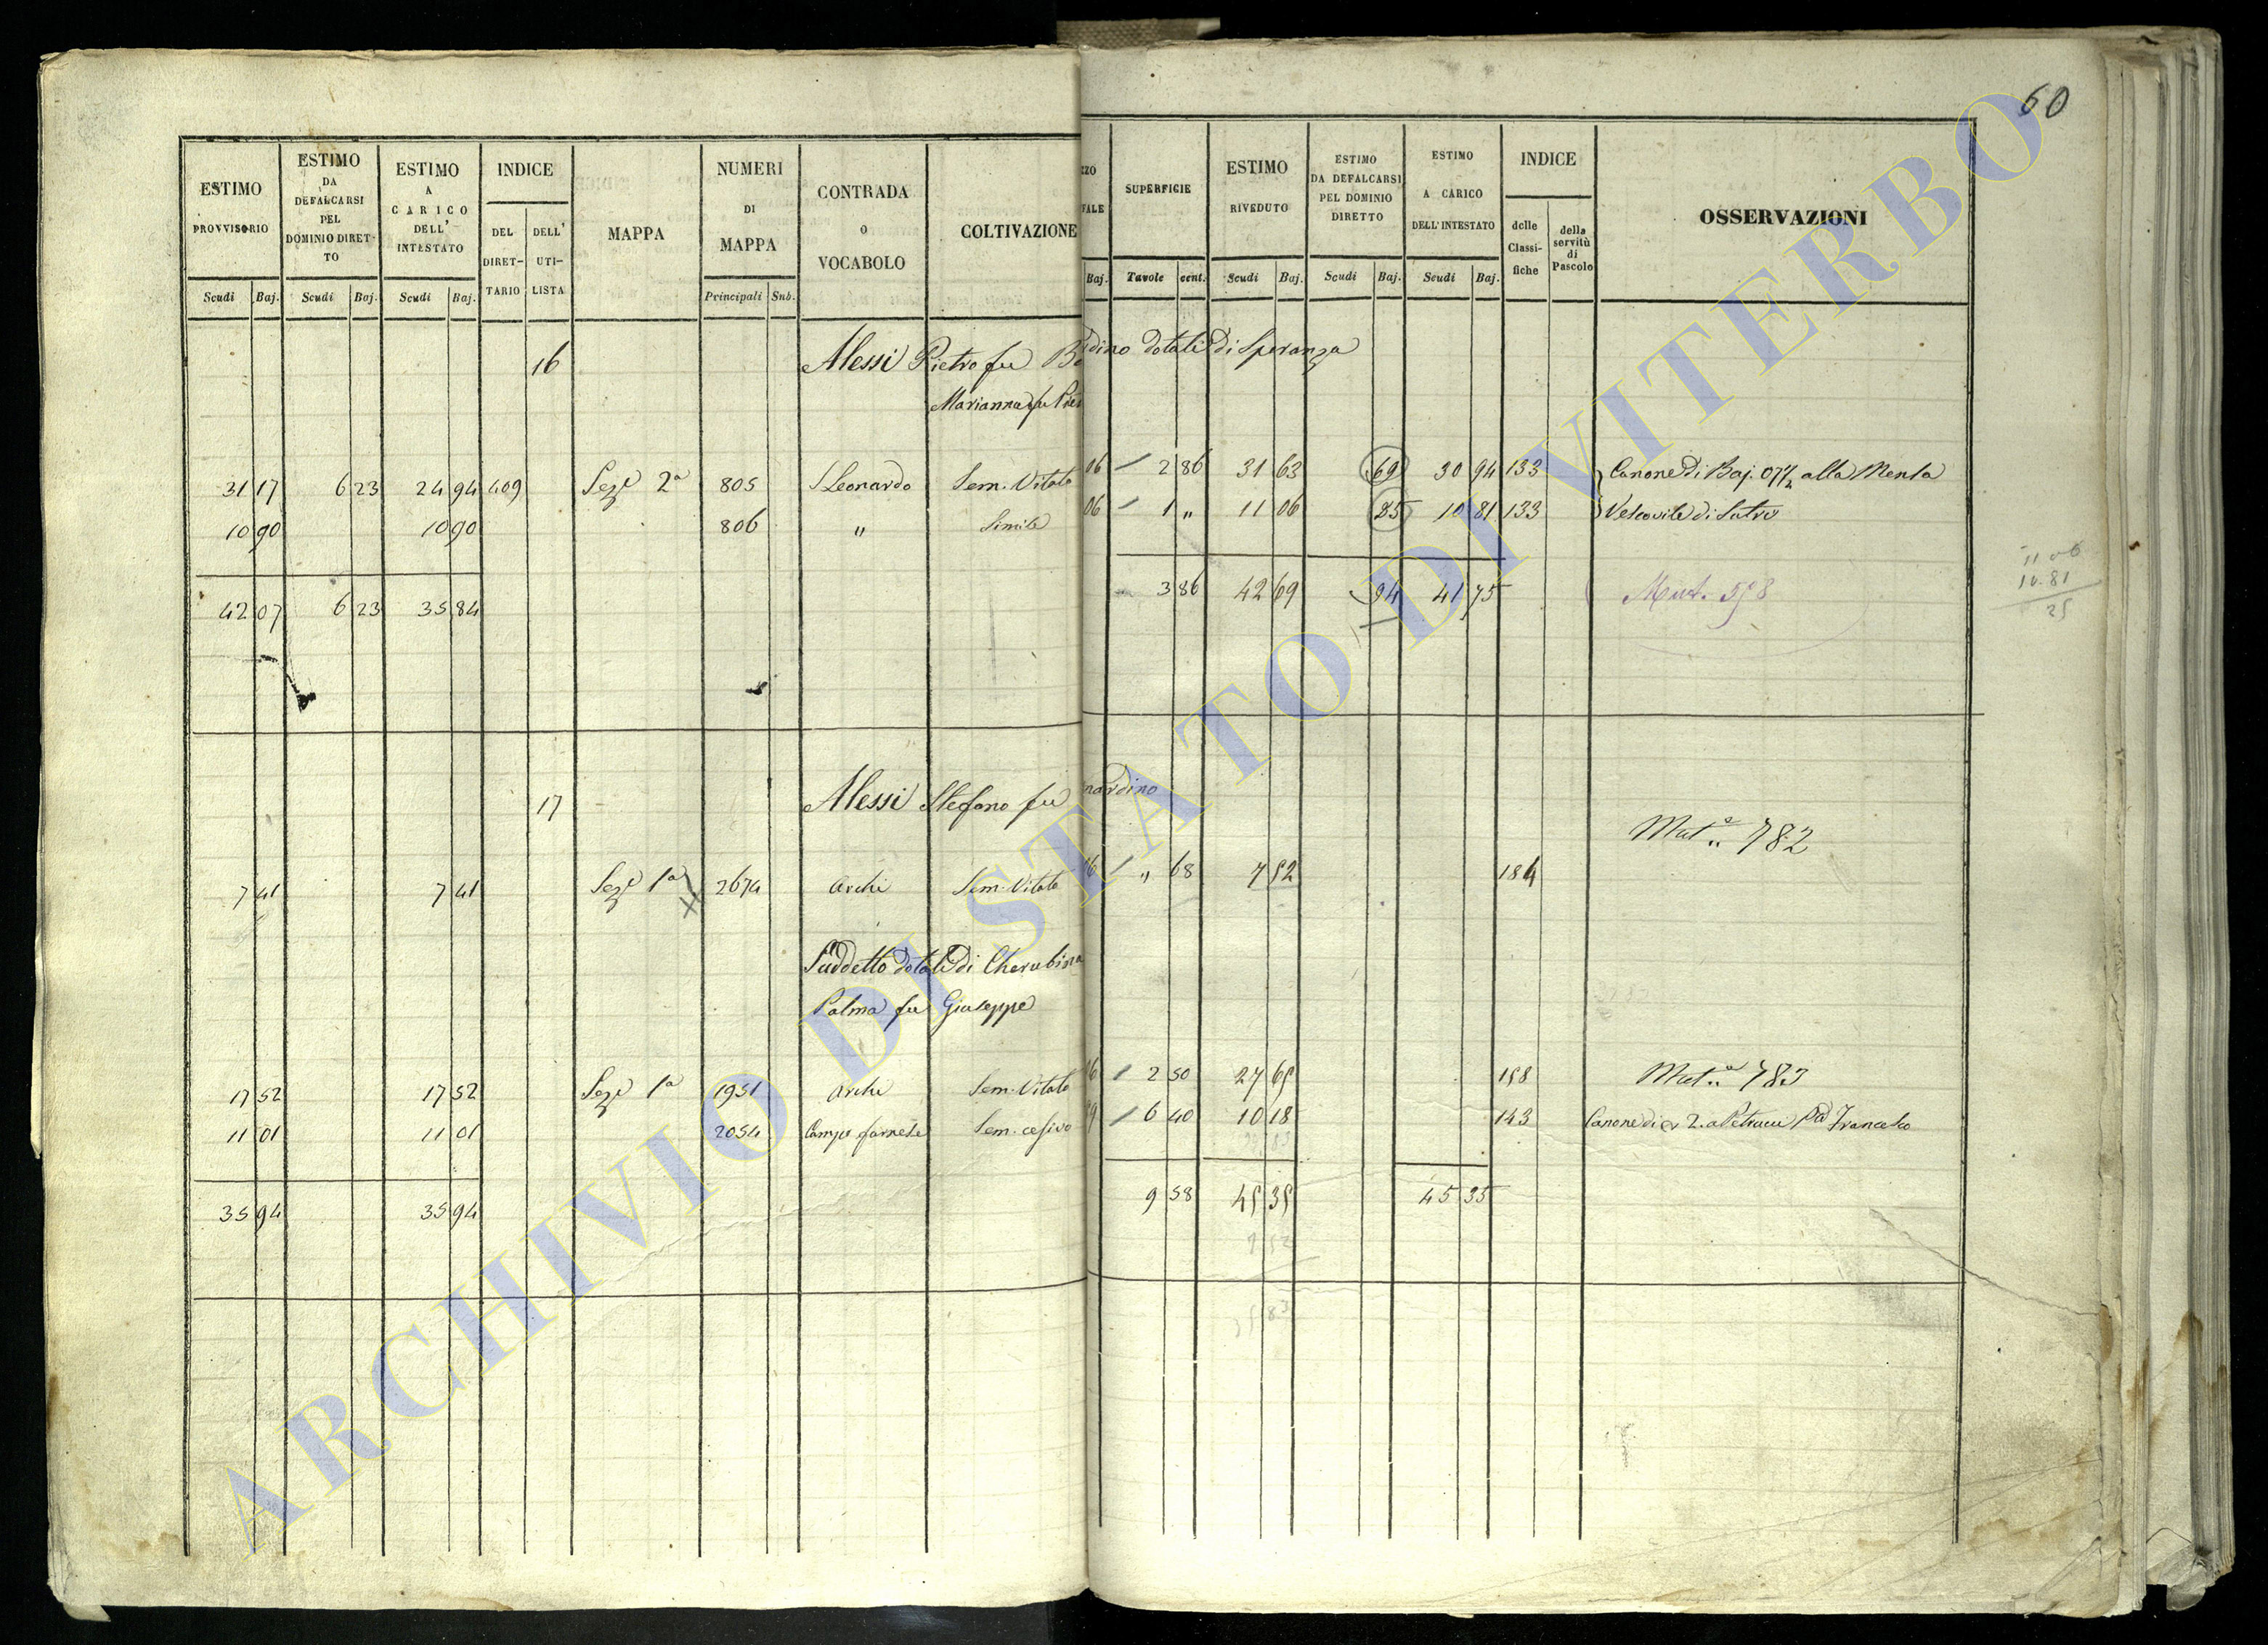 60
ESTIMO PROVVISORIO
ESTIMO DA DEFALCARSI PEL DOMINIO DIRET- TO
ESTIMO A CARICO DELL' INTESTATO
INDICE
DEL DIRET- TARIO
DELL' UTI- LISTA
MAPPA
NUMERI DI MAPPA
CONTRADA O VOCABOLO
COLTIVAZIONE
SUPERFICIE
ESTIMO RIVEDUTO
ESTIMO DA DEFALCARSI PEL DOMINIO DIRETTO
ESTIMO A CARICO DELL'INTESTATO
INDICE
delle Classi- fiche
della servitù di Pascolo
OSSERVAZIONI
Scudi Baj. Scudi Baj. Scudi Baj. Principali Sub. Baj. Tavole cent. Scudi Baj. Scudi Baj. Scudi Baj.
16 Alessi Pietro fu B dino dotali di Speranza
Marianna fu
31 17 6 23 24 94 409 Seze 2a 805 S Leonardo Sem. Vitato 06 2 86 31 63 69 30 94 133 Canone di Baj. 07½ alla Mensa
10 90 10 90 806 " Simile 06 1 " 11 06 25 10 81 133 Vescovile di Sutri
42 07 6 23 35 84 3 86 42 69 94 41 75 Mut. 598
11 06
10.81
25
17 Alessi Stefano fu nardino
Mut.e 782
7 41 7 41 Seze 1a 2674 Archi Sem. Vitato 06 " 68 7 52 184
Suddetto dotali di Cherubina
Palma fu Giuseppe
17 52 17 52 Seze 1a 1951 Archi Sem. Vitato 06 2 50 27 65 158 Mut.e 783
11 01 11 01 2054 Campo farnese Sem. cesivo 6 40 10 18 143 Canone di 2. a Petrucci Francesco
35 94 35 94 9 58 45 35 45 35
ARCHIVIO DI STATO DI VITERBO